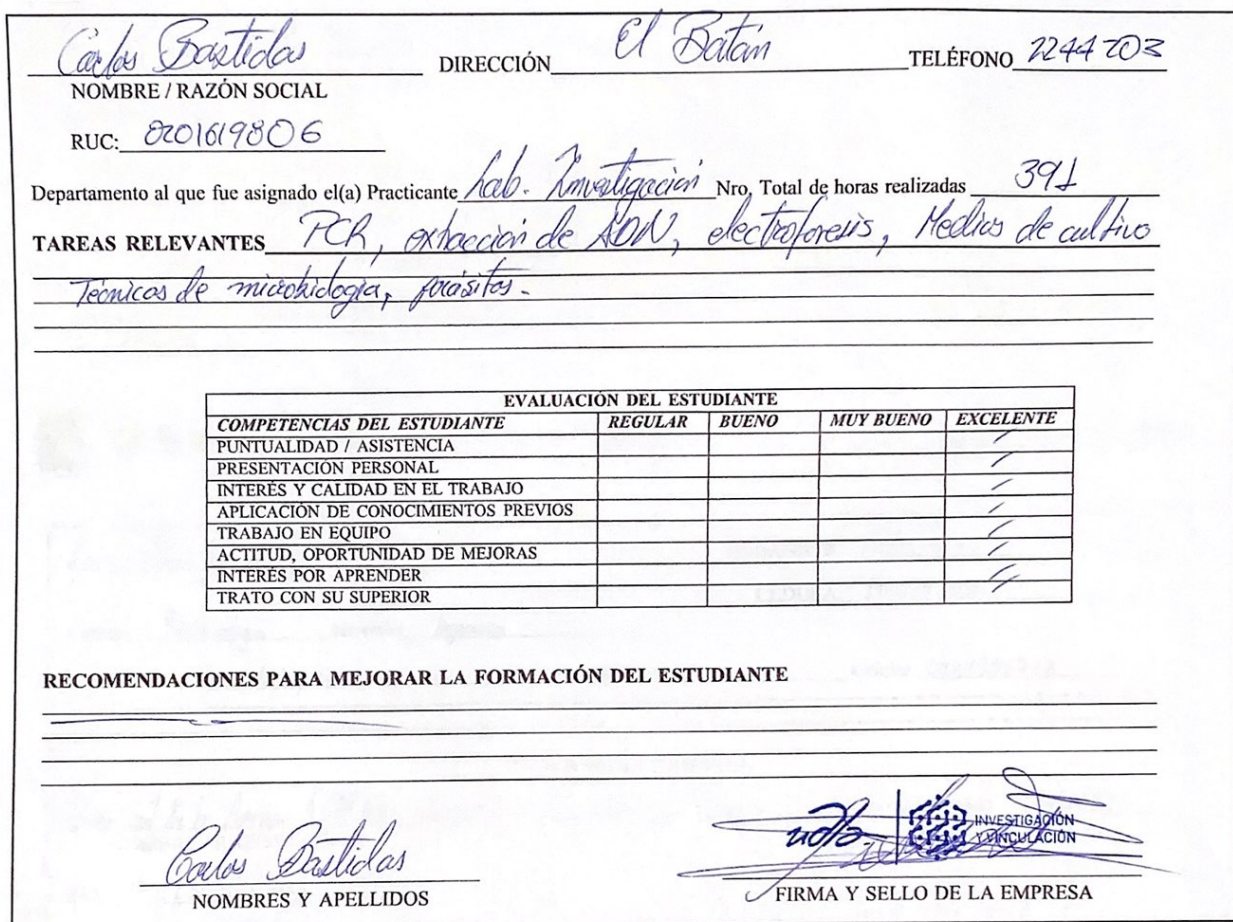 Carlos Bastidas DIRECCIÓN El Batán TELÉFONO 2244203
NOMBRE / RAZÓN SOCIAL
RUC: 0201619806
Departamento al que fue asignado el(a) Practicante Lab. Investigación Nro. Total de horas realizadas 391
TAREAS RELEVANTES PCR, extracción de ADN, electroforesis, Medios de cultivo
Técnicas de microbiología, parásitos.
EVALUACIÓN DEL ESTUDIANTE
COMPETENCIAS DEL ESTUDIANTE REGULAR BUENO MUY BUENO EXCELENTE
PUNTUALIDAD / ASISTENCIA
PRESENTACIÓN PERSONAL
INTERÉS Y CALIDAD EN EL TRABAJO
APLICACIÓN DE CONOCIMIENTOS PREVIOS
TRABAJO EN EQUIPO
ACTITUD, OPORTUNIDAD DE MEJORAS
INTERÉS POR APRENDER
TRATO CON SU SUPERIOR
RECOMENDACIONES PARA MEJORAR LA FORMACIÓN DEL ESTUDIANTE
udla INVESTIGACIÓN
Y VINCULACIÓN
Carlos Bastidas
NOMBRES Y APELLIDOS FIRMA Y SELLO DE LA EMPRESA